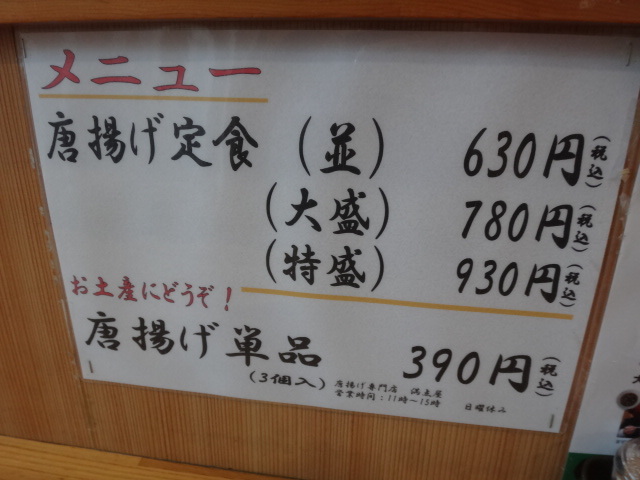 メニュー
唐揚げ定食 (並) 630円(税込)
(大盛) 780円(税込)
(特盛) 930円(税込)
お土産にどうぞ!
唐揚げ 単品 390円(税込)
(3個入)
唐揚げ専門店
営業時間:11時〜15時 日曜休み